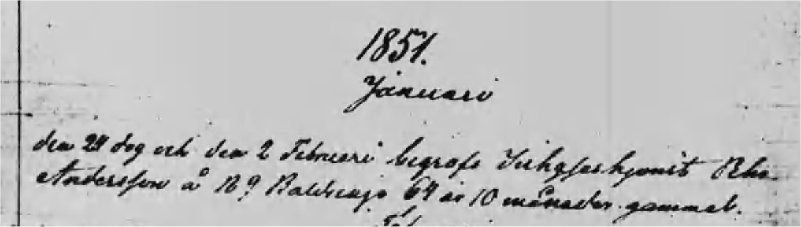 1851.
Januari
den 28 dog och den 2 Februari begrofs
Andersson å N 9 64 år 10 månader gammal.